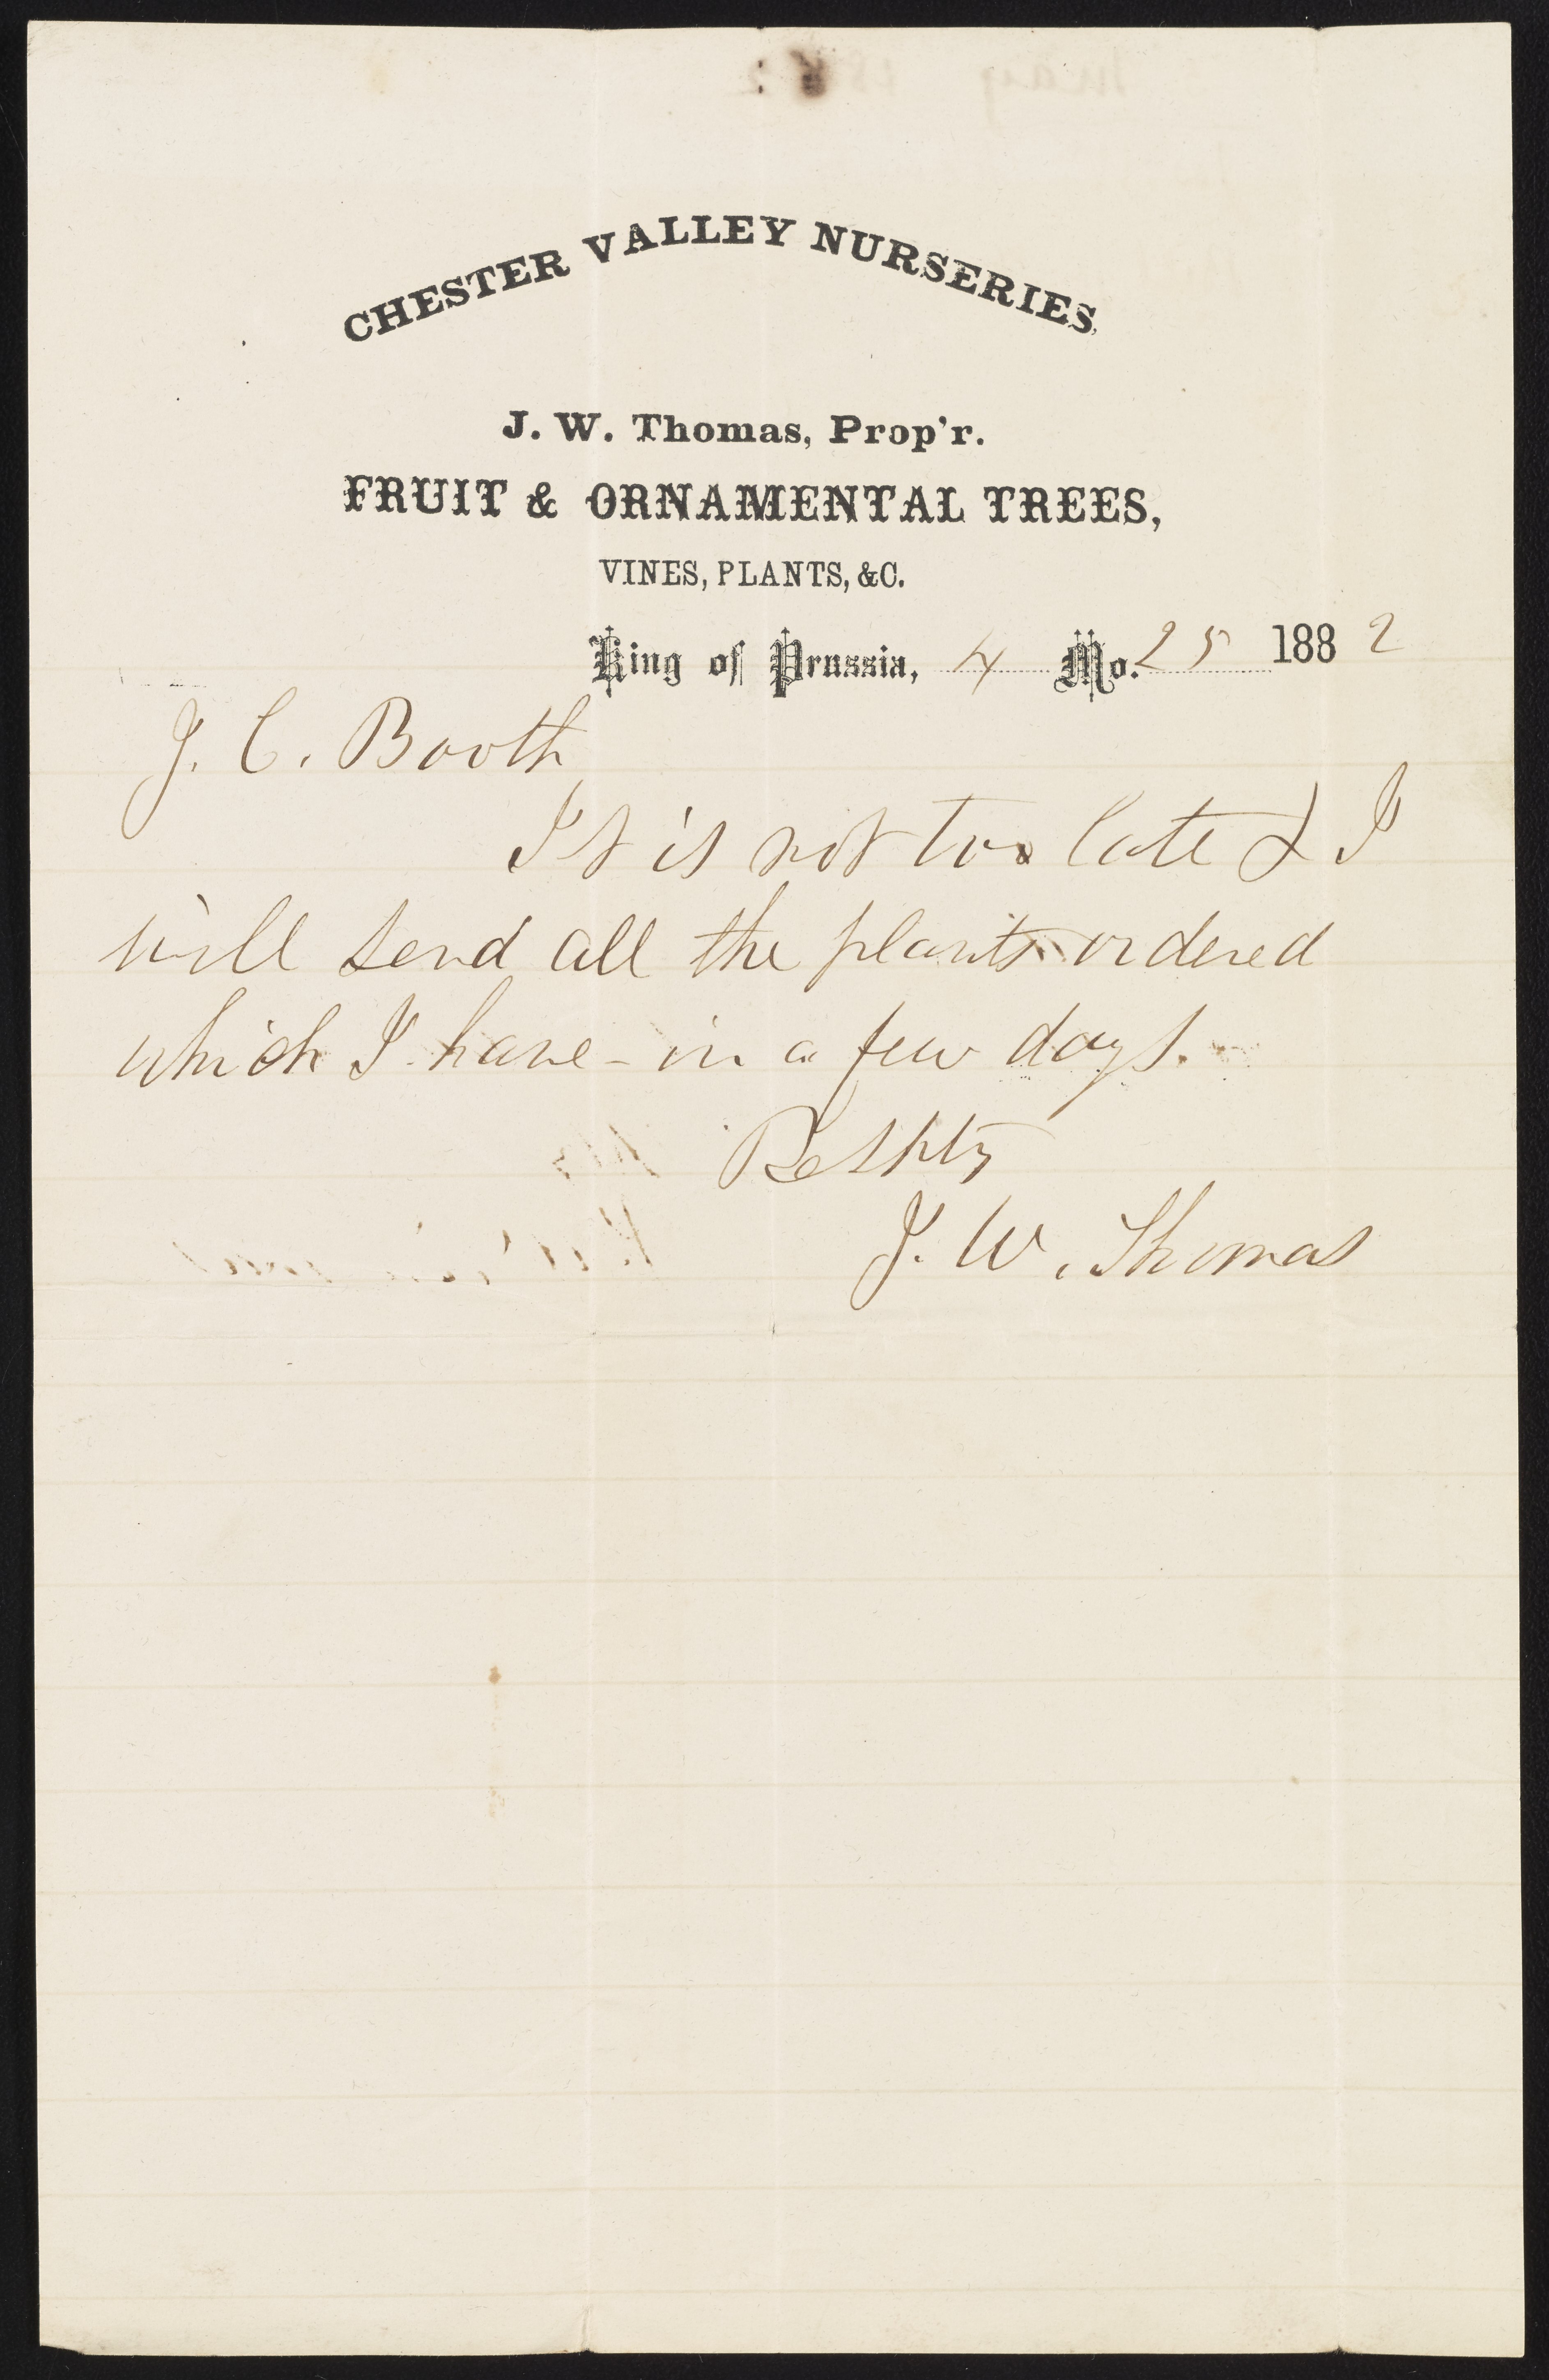 CHESTER VALLEY NURSERIES,
J. W. Thomas, Prop'r.
FRUIT & ORNAMENTAL TREES,
VINES, PLANTS, &C.
King of Prussia, 4 Mo. 25 1882
J. C. Booth
It is not too late & I
will send all the plants ordered
which I have - in a few days.
Respty
J. W. Thomas